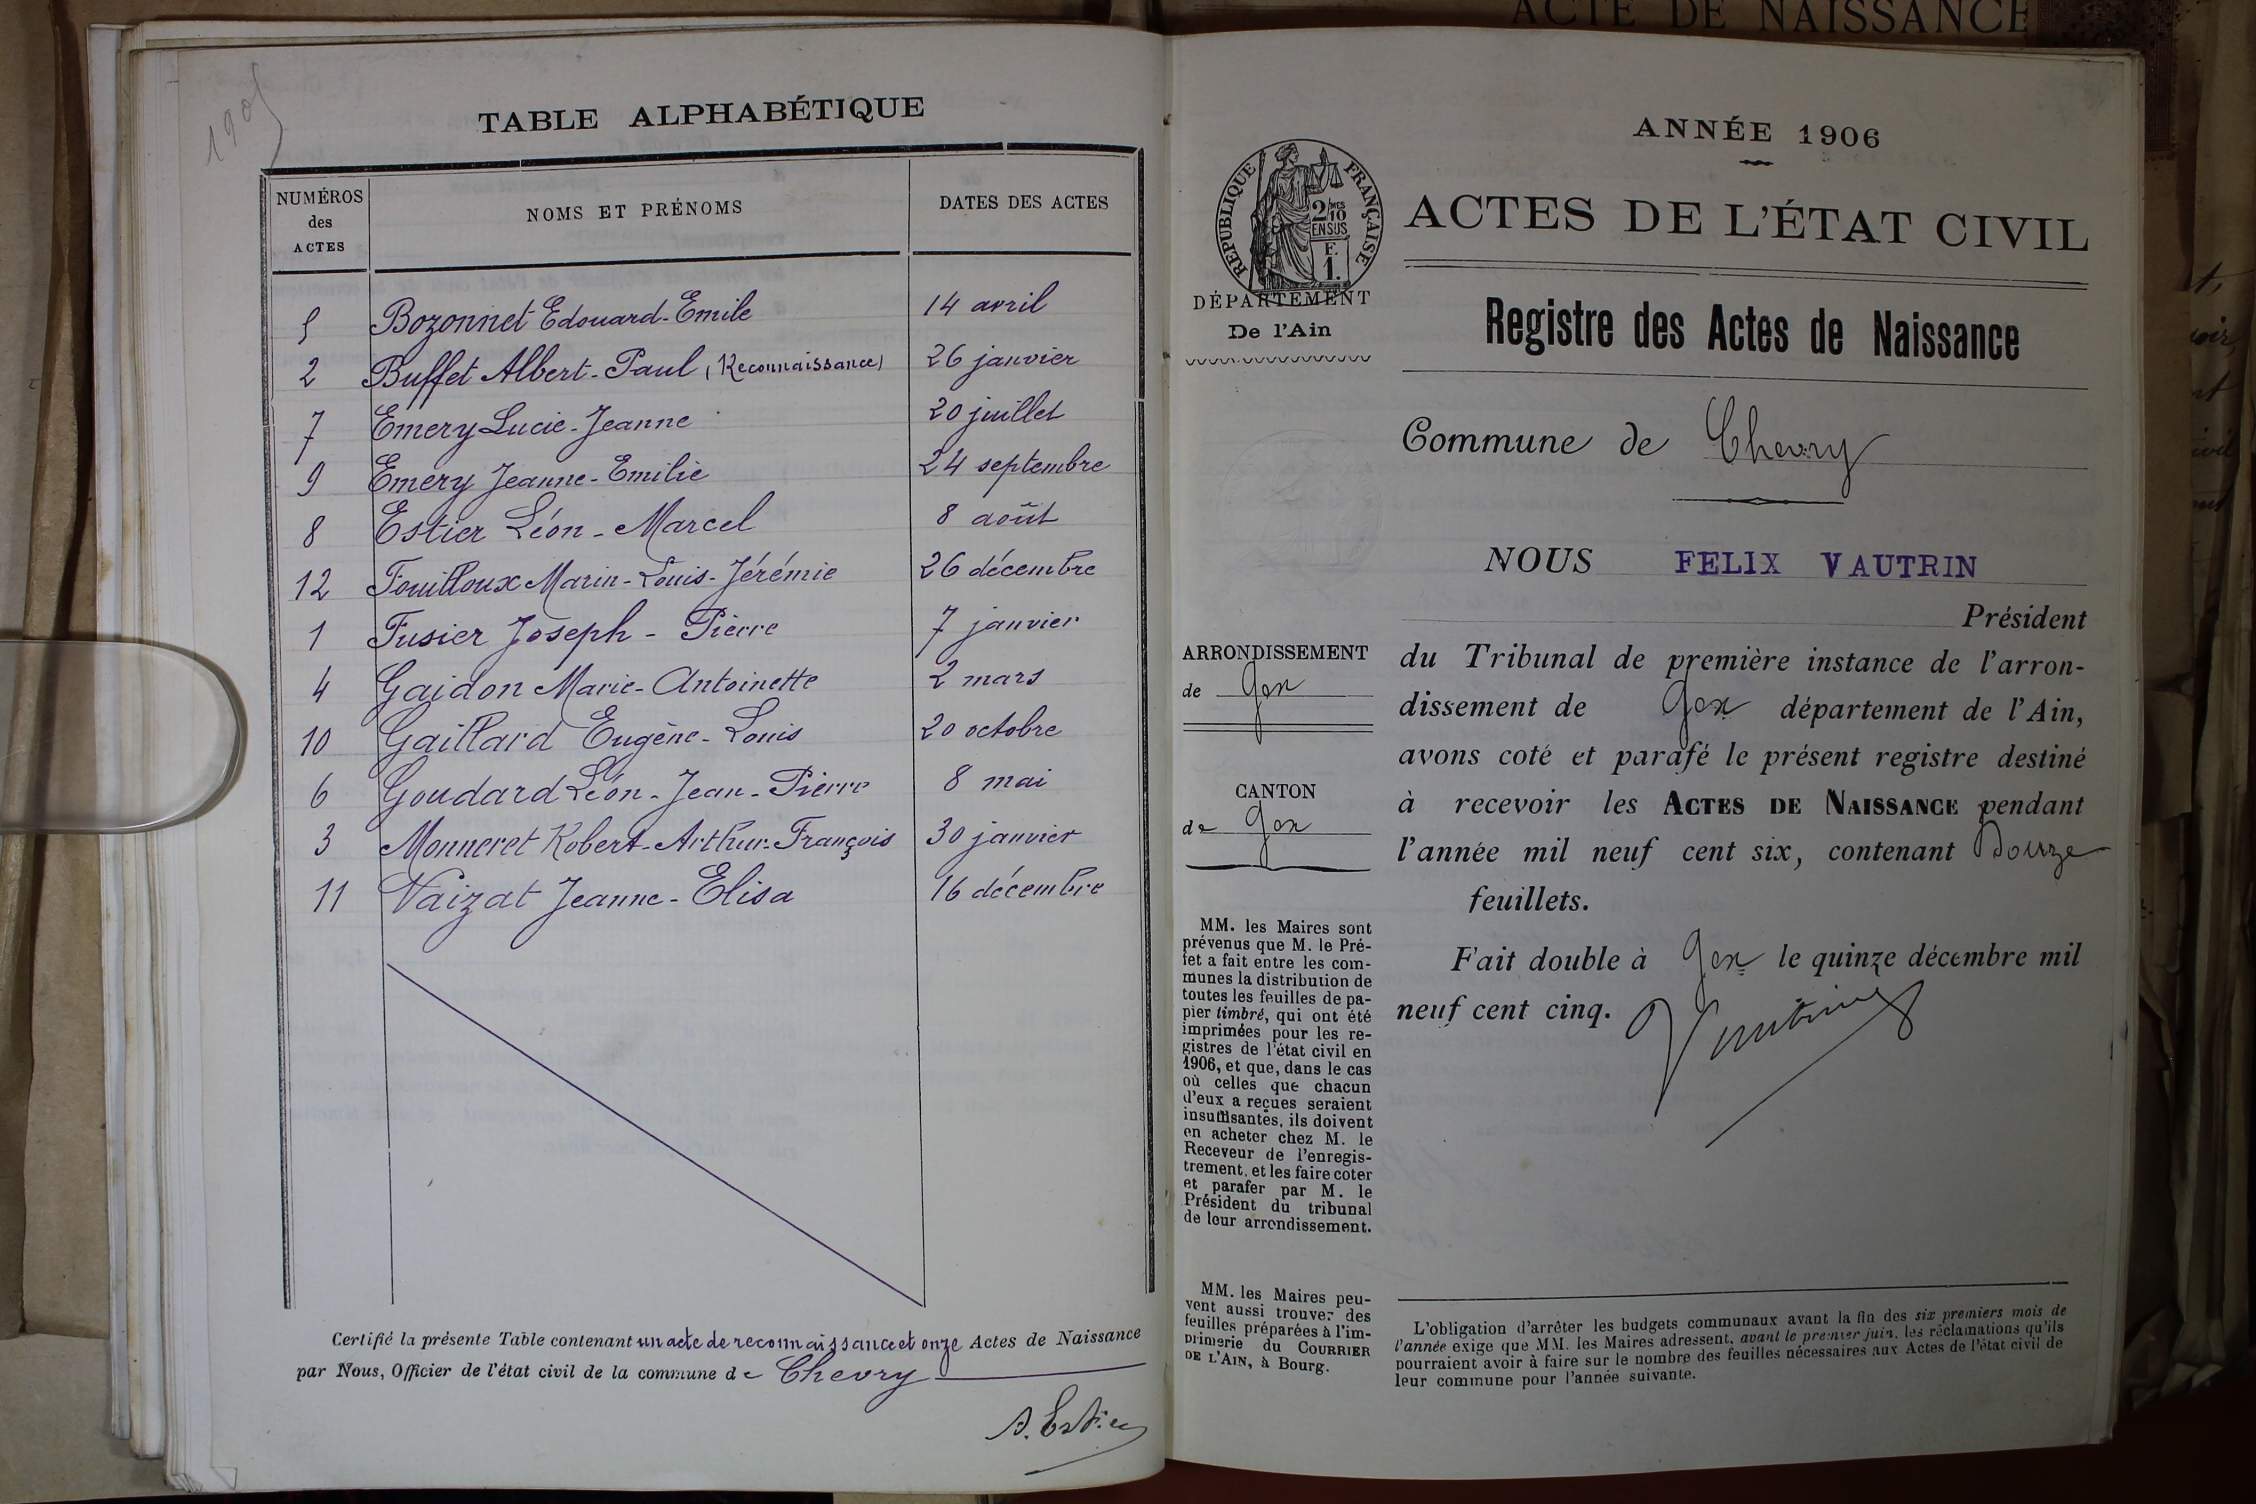 ACTE DE NAISSANCE
1905
TABLE ALPHABÉTIQUE
NUMÉROS des ACTES
NOMS ET PRÉNOMS
DATES DES ACTES
5 Bozonnet Edouard-Emile 14 avril
2 Buffet Albert-Paul (Reconnaissance) 26 janvier
7 Emery Lucie-Jeanne 20 juillet
9 Emery Jeanne-Emilie 24 septembre
8 Estier Léon-Marcel 8 août
12 Fouilloux Marin-Louis-Jérémie 26 décembre
1 Fusier Joseph-Pierre 7 janvier
4 Gaidon Marie-Antoinette 2 mars
10 Gaillard Eugène-Louis 20 octobre
6 Goudard Léon-Jean-Pierre 8 mai
3 Monneret Robert-Arthur-François 30 janvier
11 Vaizat Jeanne-Elisa 16 décembre
Certifié la présente Table contenant un acte de reconnaissance et onze Actes de Naissance
par Nous, Officier de l'état civil de la commune de Chevry
A. Estier
RÉPUBLIQUE FRANÇAISE
2/10
MES
EN SUS
F.
1.
DÉPARTEMENT
De l'Ain
ARRONDISSEMENT
de Gex
CANTON
de Gex
MM. les Maires sont
prévenus que M. le Pré-
fet a fait entre les com-
munes la distribution de
toutes les feuilles de pa-
pier timbré, qui ont été
imprimées pour les re-
gistres de l'état civil en
1906, et que, dans le cas
où celles que chacun
d'eux a reçues seraient
insuffisantes, ils doivent
en acheter chez M. le
Receveur de l'enregis-
trement, et les faire coter
et parafer par M. le
Président du tribunal
de leur arrondissement.
MM. les Maires peu-
vent aussi trouver des
feuilles préparées à l'im-
primerie du COURRIER
DE L'AIN, à Bourg.
ANNÉE 1906
ACTES DE L'ÉTAT CIVIL
Registre des Actes de Naissance
Commune de Chevry
NOUS FELIX VAUTRIN
Président
du Tribunal de première instance de l'arron-
dissement de Gex département de l'Ain,
avons coté et parafé le présent registre destiné
à recevoir les ACTES DE NAISSANCE pendant
l'année mil neuf cent six, contenant Douze
feuillets.
Fait double à Gex le quinze décembre mil
neuf cent cinq.
Vautrin
L'obligation d'arrêter les budgets communaux avant la fin des six premiers mois de
l'année exige que MM. les Maires adressent, avant le premier juin, les réclamations qu'ils
pourraient avoir à faire sur le nombre des feuilles nécessaires aux Actes de l'état civil de
leur commune pour l'année suivante.